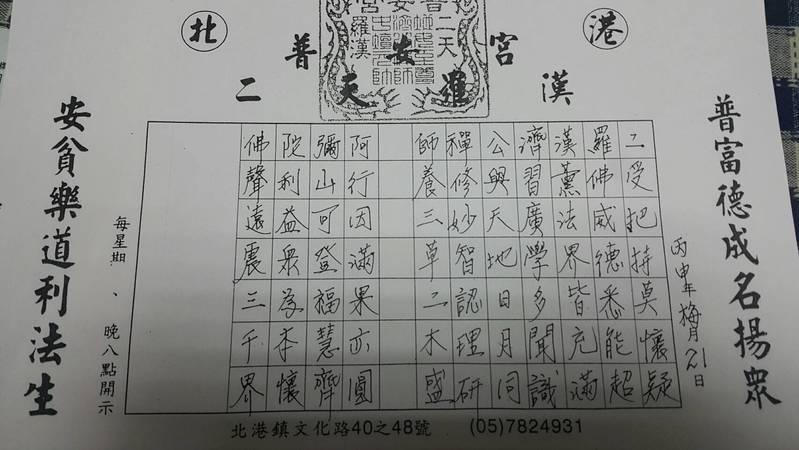 北港
普安宮
二天羅漢
普富德成名揚眾
丙申年梅月21日
二受把持莫懷疑
羅佛威德悉能超
漢薰法界皆充滿
濟習廣學多聞識
公興天地日月同
禪修妙智認理研
師養三草二木盛
阿行因滿果亦圓
彌山可登福慧齊
陀利益眾為本懷
佛聲遠震三千界
每星期、晚八點開示
安貧樂道利法生
北港鎮文化路40之48號 (05)7824931